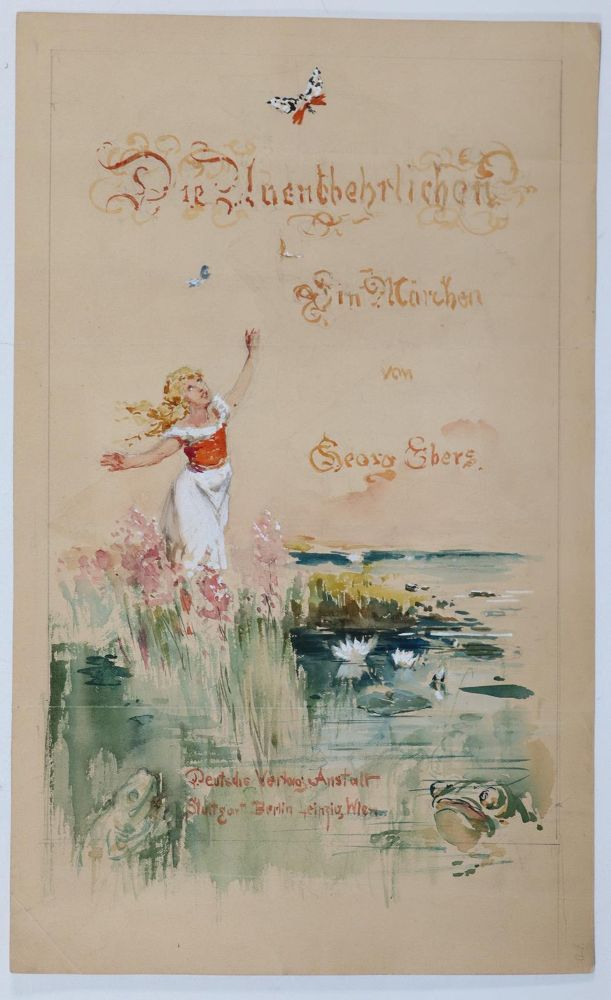 Die Unentbehrlichen
Ein Märchen
von
Georg Ebers.
Deutsche Verlags Anstalt
Stuttgart Berlin Leipzig Wien